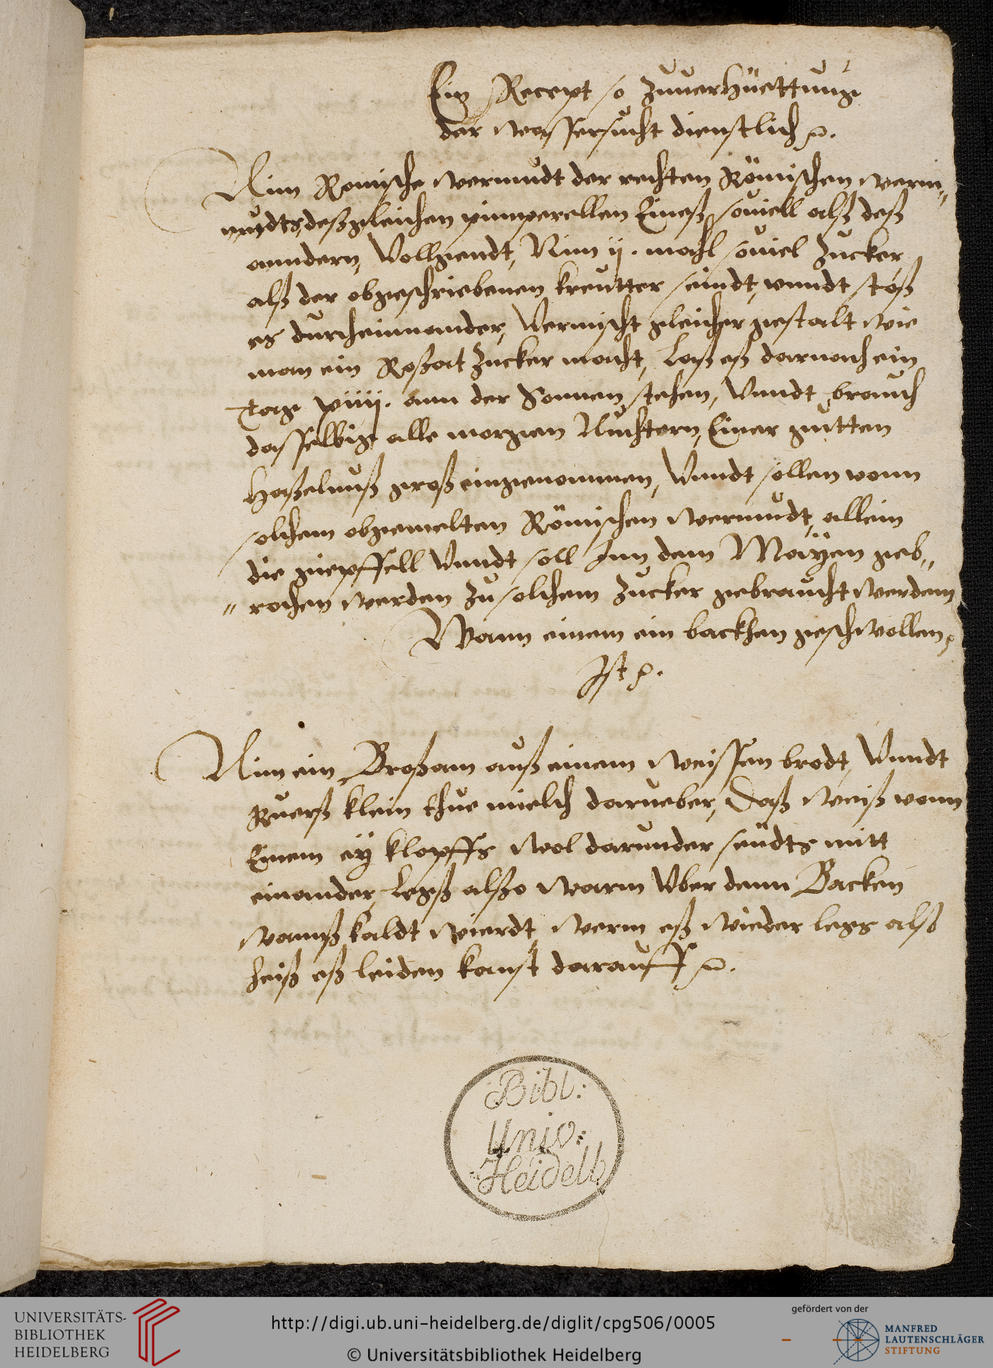 Ein Recept so zuuerhüettung
der wassersücht dienstlich
Nim Romische wermudt der rechten Römischen werm„
uudts deßgleichen pimperellen Eineß souiell alß deß
anndern, Vollgendt, Nim ij. mahl souiel Zucker
alß der obgeschriebenen kreutter seindt, vnndt stoß
es durcheinnander, Vermischt gleicher gestalt wie
man ein Roßat Zucker macht, Laß eß darnach ein
Tag xiiij. ann der Sonnen stehen, Vnndt brauch
dasselbig alle morgen Nuchtern, Einer gutten
Haßelnuß groß eingenommen, Vnndt sollen vonn
solchem obgemelten Römischen wermudt, allein
die giepffell Vnndt soll Inn dem Mayen geb„
„ rochen werden zu solchem Zucker gebraucht werdenn
Wann einem ein backhen geschwollen
Ist
Nim ein Broßam auß einem weissen brodt, Vnndt
Ruerß klein thue milch darueber, Daß weiß vonn
Einem ey klopffs wol darunder seudts mitt
einander, Legß alßo warm Vber denn Backen
wannß kaldt wierdt, werm eß wieder legs alß
heiß eß leiden kanst darauff
Bibl:
Univ:
Heidelb
UNIVERSITÄTS-
BIBLIOTHEK
HEIDELBERG
http://digi.ub.uni-heidelberg.de/diglit/cpg506/0005
© Universitätsbibliothek Heidelberg
gefördert von der
MANFRED
LAUTENSCHLÄGER
STIFTUNG